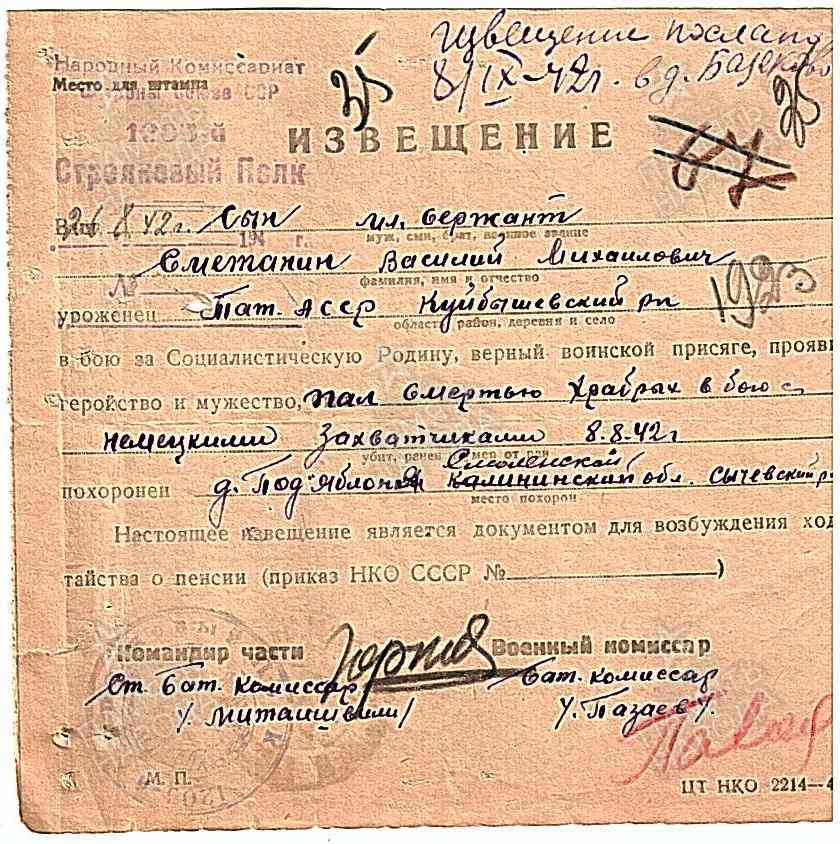 Извещение послано
8/IX-42г. в д.
35
Народный Комиссариат
Место для штампа
Обороны Союза ССР
Стрелковый Полк
ИЗВЕЩЕНИЕ
47
25
26 8 42г. Сын мл. сержант
194 г. муж, сын, брат, военное звание
Сметанин Василий Михайлович
№ фамилия, имя и отчество
1923
уроженец Тат. АССР Куйбышевский рн
область, район, деревня и село
в бою за Социалистическую Родину, верный воинской присяге, прояви
геройство и мужество, пал смертью храбрых в бою с
немецкими захватчиками 8.8.42г
убит, ранен умер от ран
Смоленской
похоронен д. Под'яблоня Калининский обл. Сычевский р
место похорон
Настоящее извещение является документом для возбуждения ход
тайства о пенсии (приказ НКО СССР № )
Командир части Военный комиссар
Ст. бат. комиссар бат. комиссар
М. П.
ЦТ НКО 2214—4